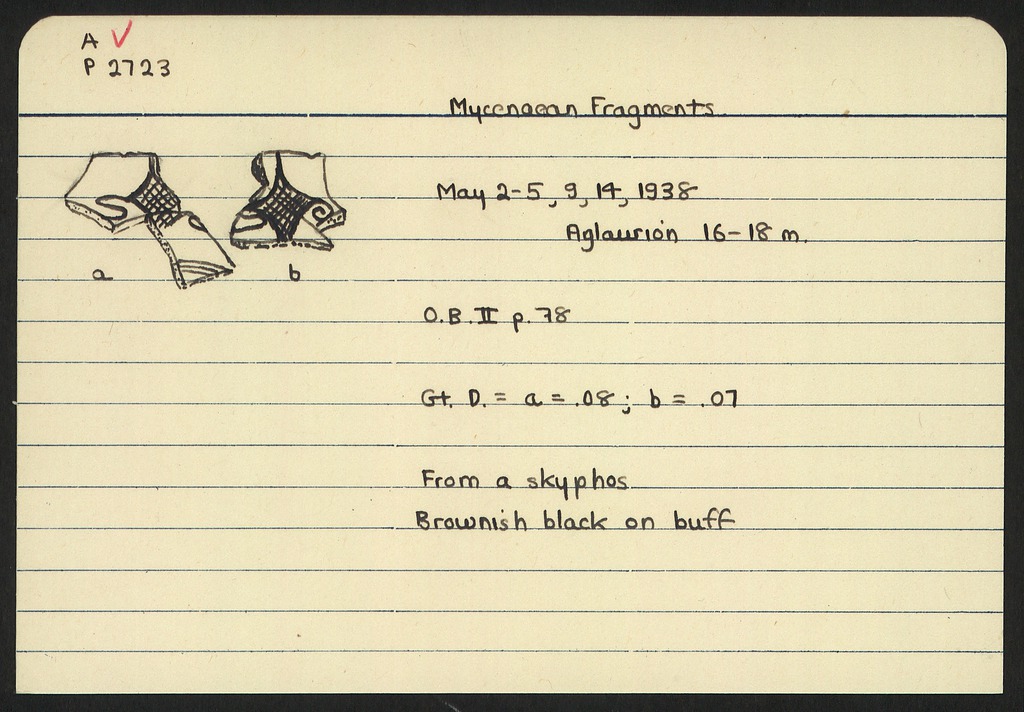 A ✓
P 2723
Mycenaean Fragments.
May 2-5, 9, 14, 1938
Aglaurion 16-18 m.
O.B. II p. 78
Gt. D. = a = .08; b = .07
From a skyphos
Brownish black on buff
a b